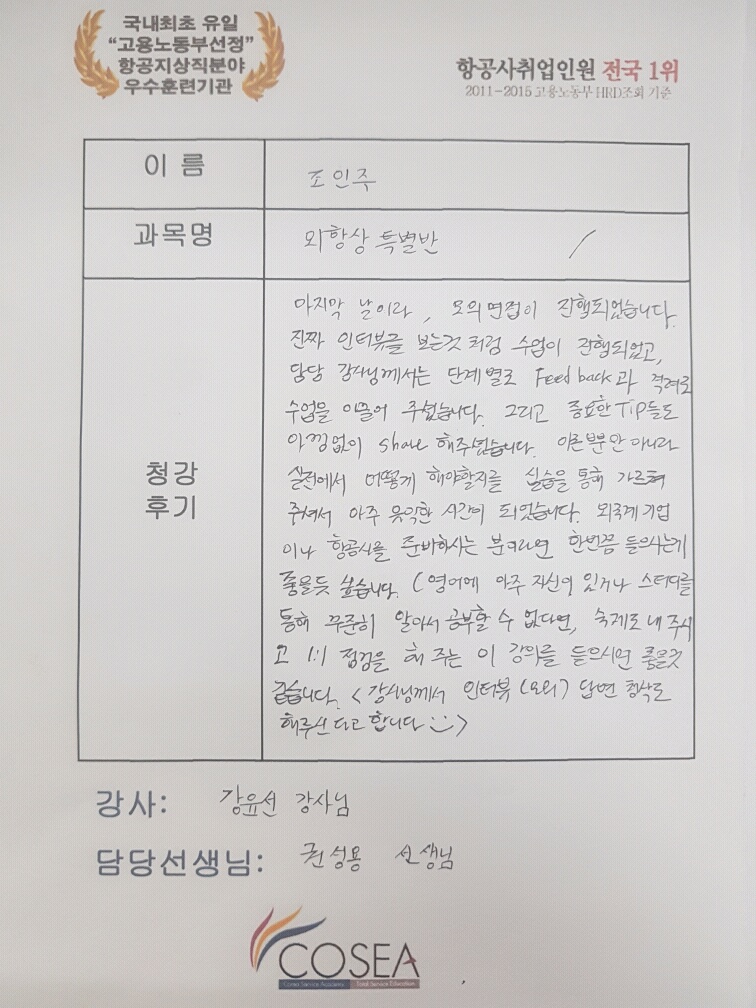 국내최초 유일
“고용노동부선정”
항공지상직분야
우수훈련기관
항공사취업인원 전국 1위
2011-2015 고용노동부 HRD조회 기준
이 름
조인주
과목명
외항상 특별반 /
청강
후기
마지막 날이라, 모의면접이 진행되었습니다.
진짜 인터뷰를 보는것 처럼 수업이 진행되었고,
담당 강사님께서는 단계별로 Feed back과 격려로
수업을 이끌어 주셨습니다. 그리고 중요한 Tip들도
아낌없이 share 해주셨습니다. 이론뿐만 아니라
실전에서 어떻게 해야할지를 실습을 통해 가르쳐
주셔서 아주 유익한 시간이 되었습니다. 외국계 기업
이나 항공사를 준비하시는 분이라면 한번쯤 들으시는게
좋을듯 싶습니다. (영어에 아주 자신이 있거나 스터디를
통해 꾸준히 알아서 공부할 수 없다면, 숙제도 내 주시
고 1:1 점검을 해 주는 이 강의를 들으시면 좋을것
같습니다. <강사님께서 인터뷰 (모의) 답변 첨삭도
해주신다고 합니다 :)>
강사: 강윤선 강사님
담당선생님: 권성용 선생님
COSEA
Cosea Service Academy Total Service Education